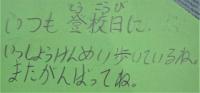 いつも登校日に、
いっしょうけんめい歩いているね。
またがんばってね。